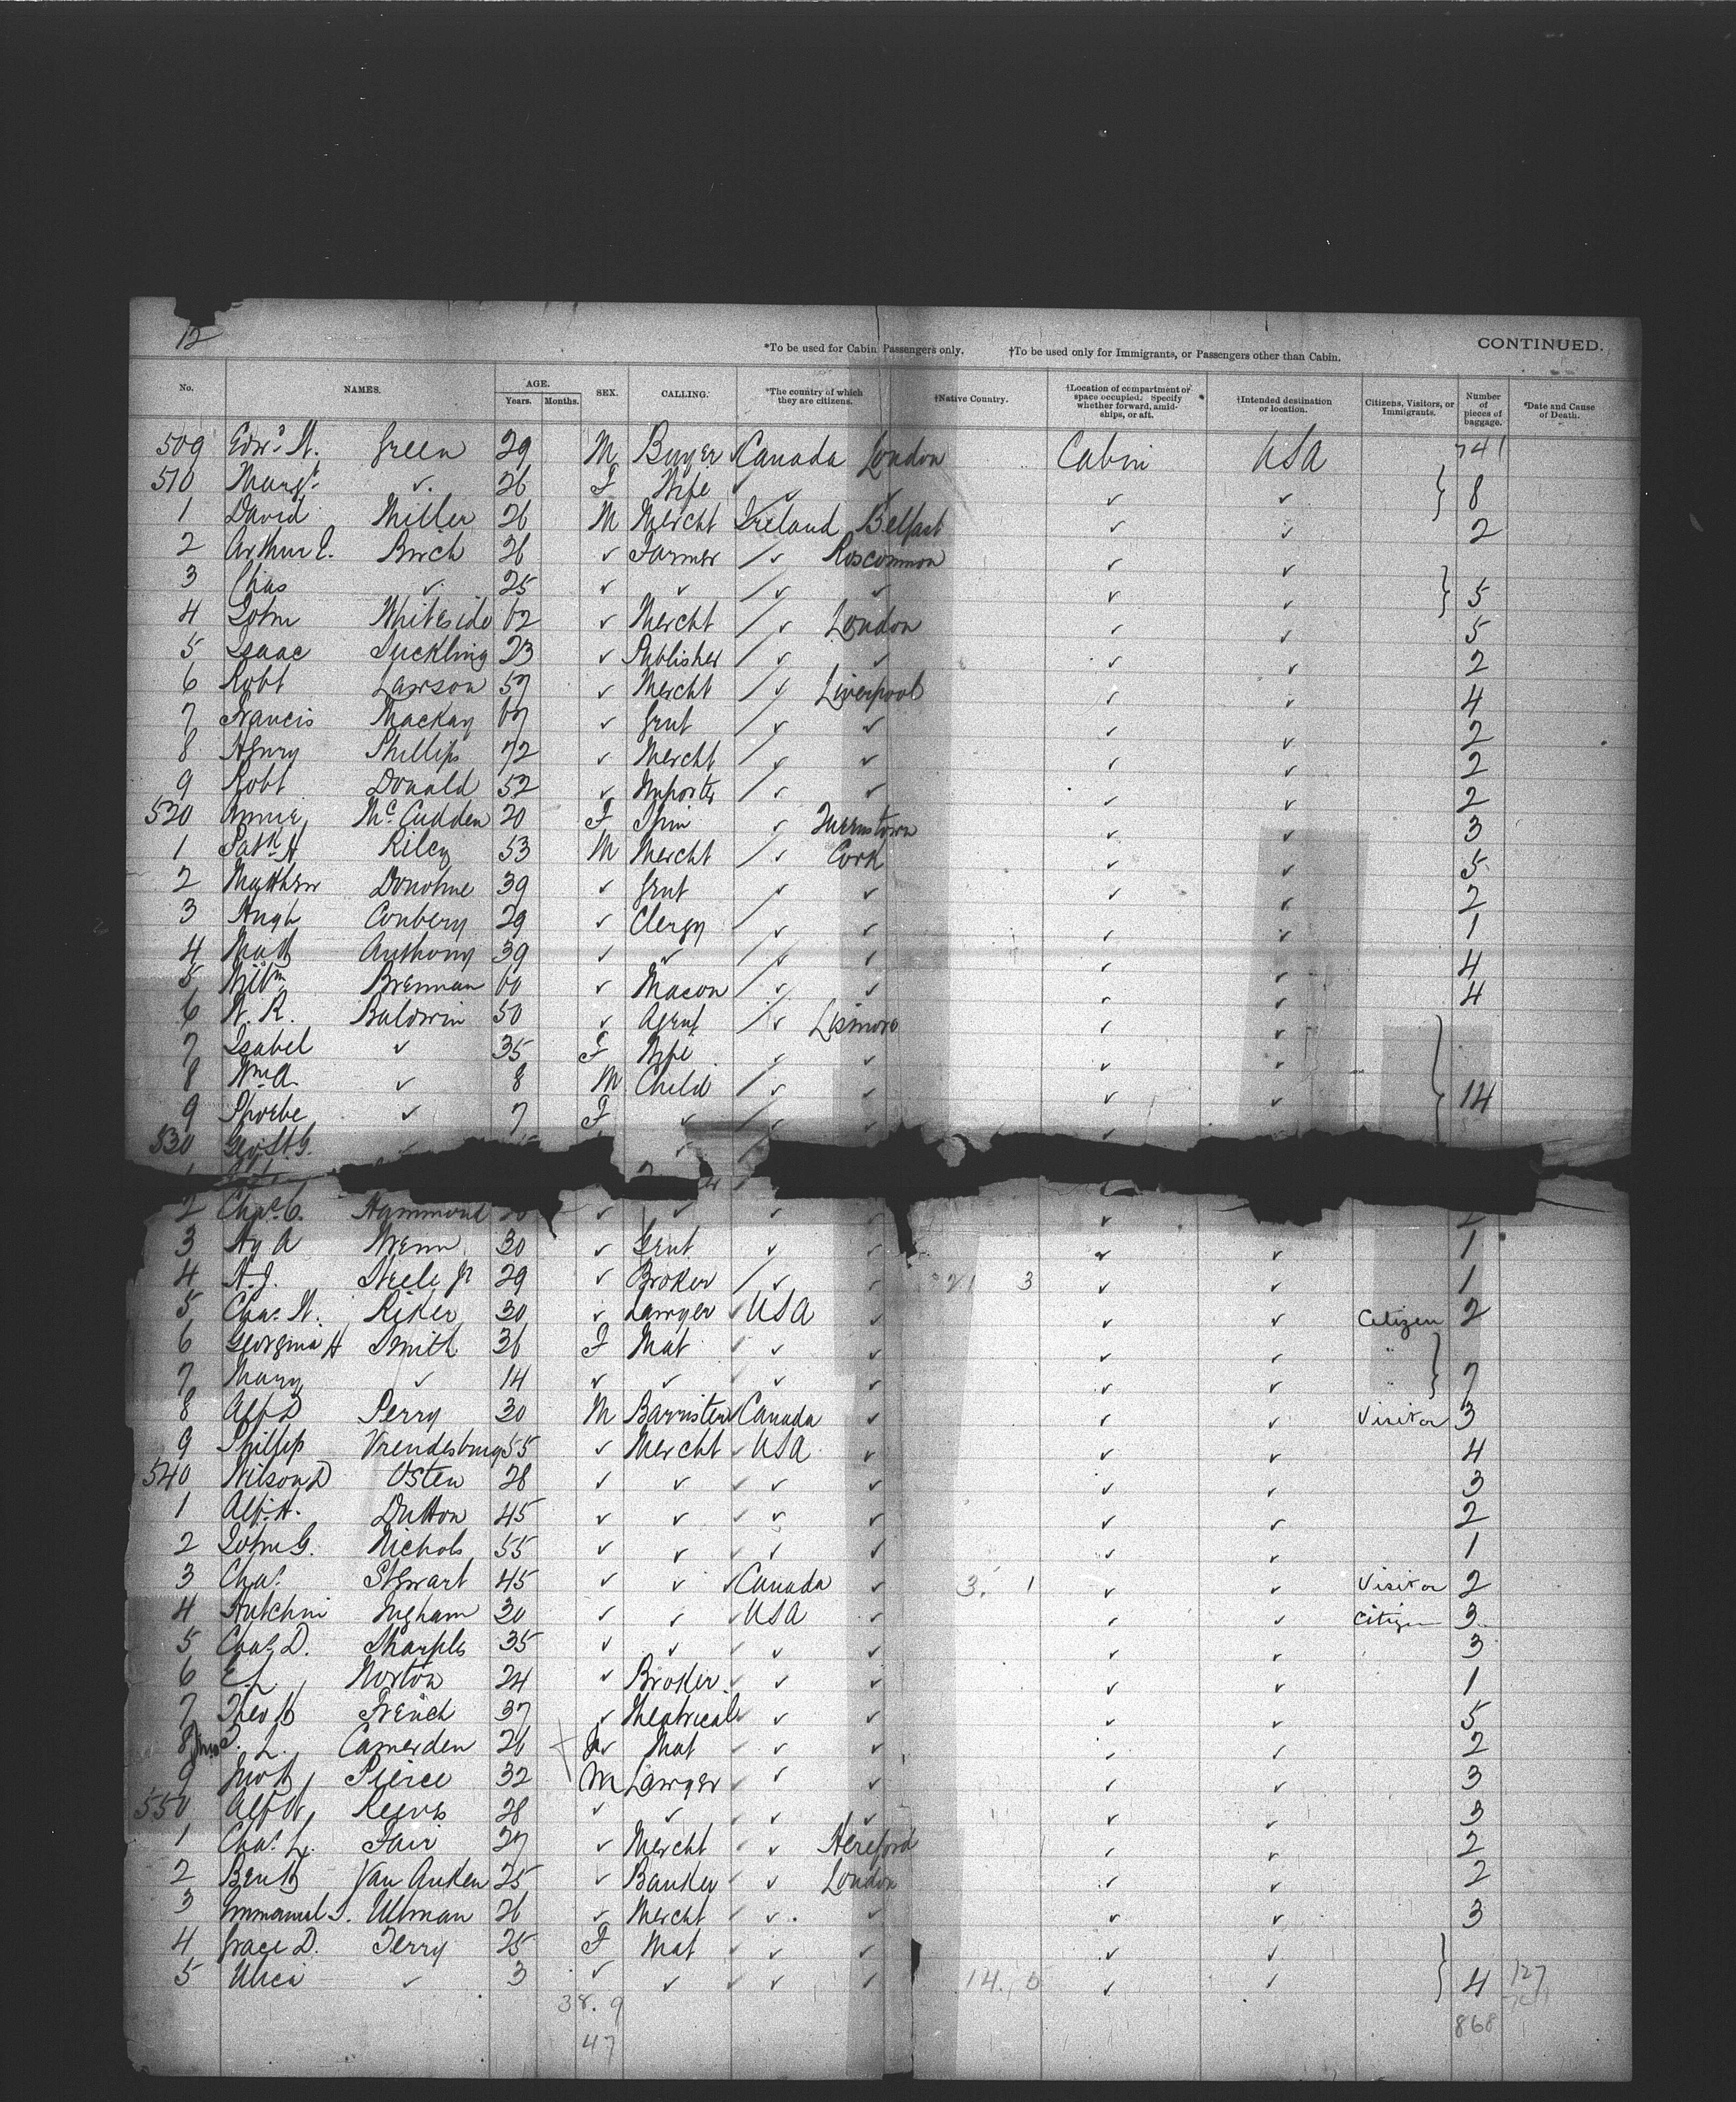 12
*To be used for Cabin Passengers only. †To be used only for Immigrants, or Passengers other than Cabin. CONTINUED.
No. NAMES. AGE. Years. Months. SEX. CALLING. *The country of which they are citizens. †Native Country. †Location of compartment or space occupied. Specify whether forward, amidships, or aft. †Intended destination or location. Citizens, Visitors, or Immigrants. Number of pieces of baggage. *Date and Cause of Death.
509 Green 29 M Buyer Canada London Cabin USA 741
510 Margt ✓ 26 F Wife ✓ ✓ ✓ ✓ 8
1 David Miller 26 M Mercht Ireland Belfast ✓ ✓ 2
2 Arthur E. Birch 26 ✓ Farmer ✓ Roscommon ✓ ✓
3 Chas ✓ 25 ✓ ✓ ✓ ✓ ✓ ✓ 5
4 John Whiteside 62 ✓ Mercht ✓ London ✓ ✓ 5
5 Isaac Suckling 23 ✓ Publisher ✓ ✓ ✓ ✓ 2
6 Robt Lawson 57 ✓ Mercht ✓ Liverpool ✓ ✓ 4
7 Francis Mackay 67 ✓ Gent ✓ ✓ ✓ ✓ 2
8 Henry Phillips 72 ✓ Mercht ✓ ✓ ✓ ✓ 2
9 Robt Donald 52 ✓ Importer ✓ ✓ ✓ ✓ 2
520 Annie McCudden 20 F Spin ✓ Queenstown ✓ ✓ 3
1 Riley 53 M Mercht ✓ Cork ✓ ✓ 5
2 Matthew Donohue 39 ✓ Gent ✓ ✓ ✓ ✓ 2
3 Hugh Conbery 29 ✓ Clergy ✓ ✓ ✓ ✓ 1
4 Matt Anthony 39 ✓ ✓ ✓ ✓ ✓ ✓ 4
5 Brennan 60 ✓ Macon ✓ ✓ ✓ ✓ 4
6 Baldwin 50 ✓ Agent ✓ Lismore ✓ ✓
7 Isabel ✓ 35 F Wife ✓ ✓ ✓ ✓
8 Wm A. ✓ 8 M Child ✓ ✓ ✓ ✓ 14
9 Phoebe ✓ 7 F ✓ ✓ ✓ ✓
530 Geo St G.
2 Chas C. Hammond ✓ ✓ ✓ ✓ ✓ 2
3 Hy A Wenn 30 ✓ Gent ✓ ✓ ✓ ✓ 1
4 Steele Jr 29 ✓ Broker ✓ ✓ 3 ✓ ✓ 1
5 Riker 30 ✓ Lawyer USA ✓ ✓ ✓ Citizen 2
6 Georgina H Smith 36 F Mat ✓ ✓ ✓ ✓ "
7 Mary ✓ 14 ✓ ✓ ✓ ✓ ✓ ✓ 7
8 Alf D Perry 30 M Barrister Canada ✓ ✓ ✓ Visitor 3
9 Phillip Vrendesburg 55 ✓ Mercht USA ✓ ✓ ✓ 4
540 Wilson D Osten 28 ✓ ✓ ✓ ✓ ✓ ✓ 3
1 Alf. H. Dutton 45 ✓ ✓ ✓ ✓ ✓ ✓ 2
2 John G. Nichols 55 ✓ ✓ ✓ ✓ ✓ ✓ 1
3 Chas. Stewart 45 ✓ ✓ Canada ✓ 3. 1 ✓ ✓ Visitor 2
4 Hutchin Ingham 30 ✓ ✓ USA ✓ ✓ ✓ Citizen 3
5 Chas. D. Sharples 35 ✓ ✓ ✓ ✓ ✓ ✓ 3
6 Norton 24 ✓ Broker ✓ ✓ ✓ ✓ 1
7 French 37 ✓ Theatrical ✓ ✓ ✓ ✓ 5
8 Camerden 26 Mat ✓ ✓ ✓ ✓ 2
9 Pierce 32 M Lawyer ✓ ✓ ✓ ✓ 3
550 Reeves 28 ✓ ✓ ✓ ✓ ✓ ✓ 3
1 Chas. L. Fair 27 ✓ Mercht ✓ Hereford ✓ ✓ 2
2 Van Auken 25 ✓ Banker ✓ London ✓ ✓ 2
3 Immanuel S. Ullman 26 ✓ Mercht ✓ ✓ ✓ ✓ 3
4 Grace D. Terry 25 F Mat ✓ ✓ ✓ ✓
5 ✓ 3 ✓ ✓ ✓ ✓ 14. ✓ ✓ 4 127
38. 9 868
47